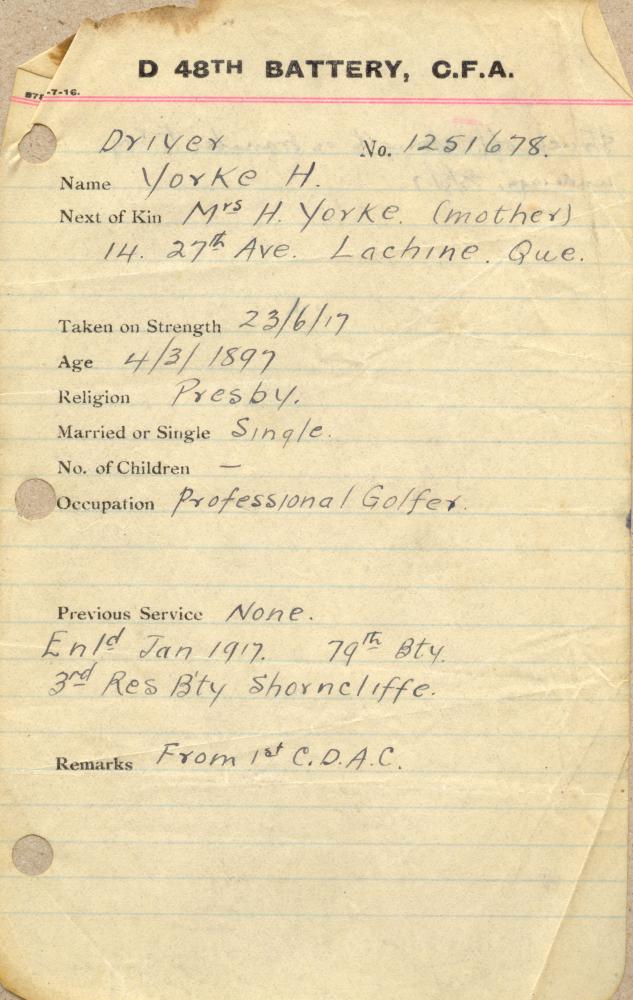 D 48TH BATTERY, C.F.A.
-7-16.
Driver No. 1251678.
Name Yorke H.
Next of Kin Mrs H. Yorke. (mother)
14. 27th Ave. Lachine. Que.
Taken on Strength 23/6/17
Age 4/3/1897
Religion Presby.
Married or Single Single.
No. of Children —
Occupation Professional Golfer.
Previous Service None.
Enld Jan 1917. 79th Bty.
3rd Res B'ty Shorncliffe.
Remarks From 1st C.D.A.C.